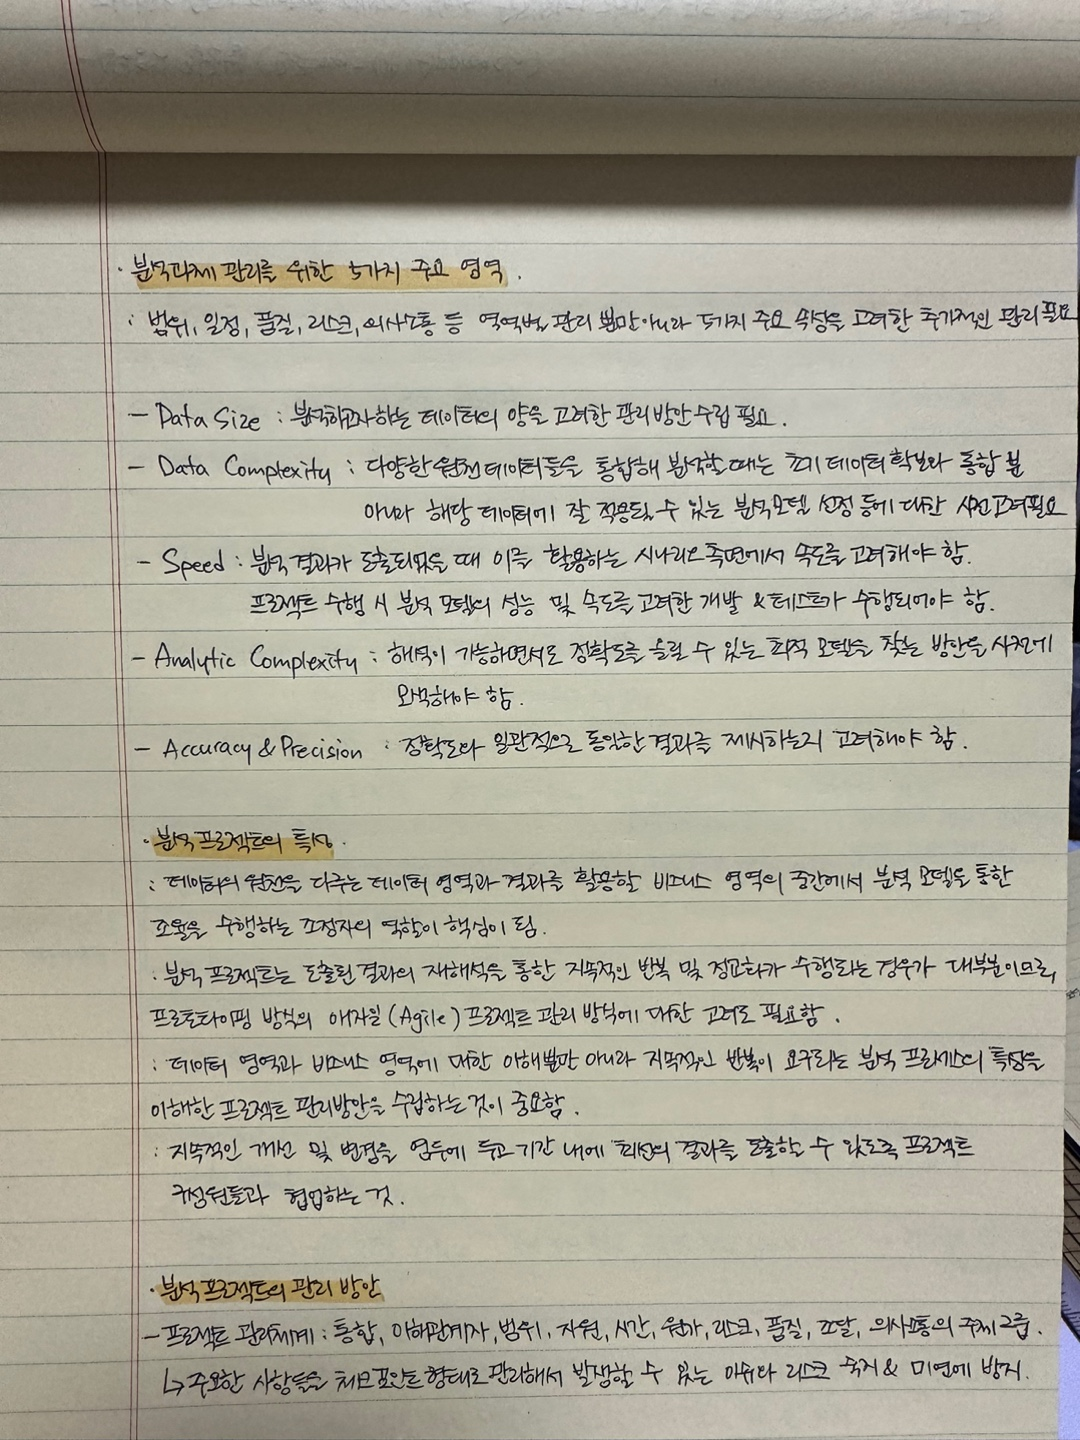 · 분석과제 관리를 위한 5가지 주요 영역.
: 범위, 일정, 품질, 리스크, 의사소통 등 영역별 관리 뿐만아니라 5가지 주요 속성을 고려한 추가적인 관리 필요
- Data Size : 분석하고자하는 데이터의 양을 고려한 관리방안 수립 필요.
- Data Complexity : 다양한 원천 데이터들을 통합해 분석할 때는 초기 데이터 확보와 통합 뿐
아니라 해당 데이터에 잘 적용될 수 있는 분석모델 선정 등에 대한 사전고려필요
- Speed : 분석 결과가 도출되었을 때 이를 활용하는 시나리오 측면에서 속도를 고려해야 함.
프로젝트 수행 시 분석 모델의 성능 및 속도를 고려한 개발 & 테스트가 수행되어야 함.
- Analytic Complexity : 해석이 가능하면서도 정확도를 올릴 수 있는 최적 모델을 찾는 방안을 사전에
모색해야 함.
- Accuracy & Precision : 정확도와 일관적으로 동일한 결과를 제시하는지 고려해야 함.
· 분석 프로젝트의 특성.
: 데이터의 원천을 다루는 데이터 영역과 결과를 활용할 비즈니스 영역의 중간에서 분석 모델을 통한
조율을 수행하는 조정자의 역할이 핵심이 됨.
: 분석 프로젝트는 도출된 결과의 재해석을 통한 지속적인 반복 및 정교화가 수행되는 경우가 대부분이므로,
프로토타이핑 방식의 애자일 (Agile) 프로젝트 관리 방식에 대한 고려도 필요함.
: 데이터 영역과 비즈니스 영역에 대한 이해뿐만 아니라 지속적인 반복이 요구되는 분석 프로세스의 특성을
이해한 프로젝트 관리방안을 수립하는 것이 중요함.
: 지속적인 개선 및 변경을 염두에 두고 기간 내에 최선의 결과를 도출할 수 있도록 프로젝트
구성원들과 협업하는 것.
· 분석프로젝트의 관리 방안
- 프로젝트 관리체계 : 통합, 이해관계자, 범위, 자원, 시간, 원가, 리스크, 품질, 조달, 의사소통의 주제 그룹.
↳ 주요한 사항들을 체크포인트 형태로 관리해서 발생할 수 있는 이슈와 리스크 숙지 & 미연에 방지.